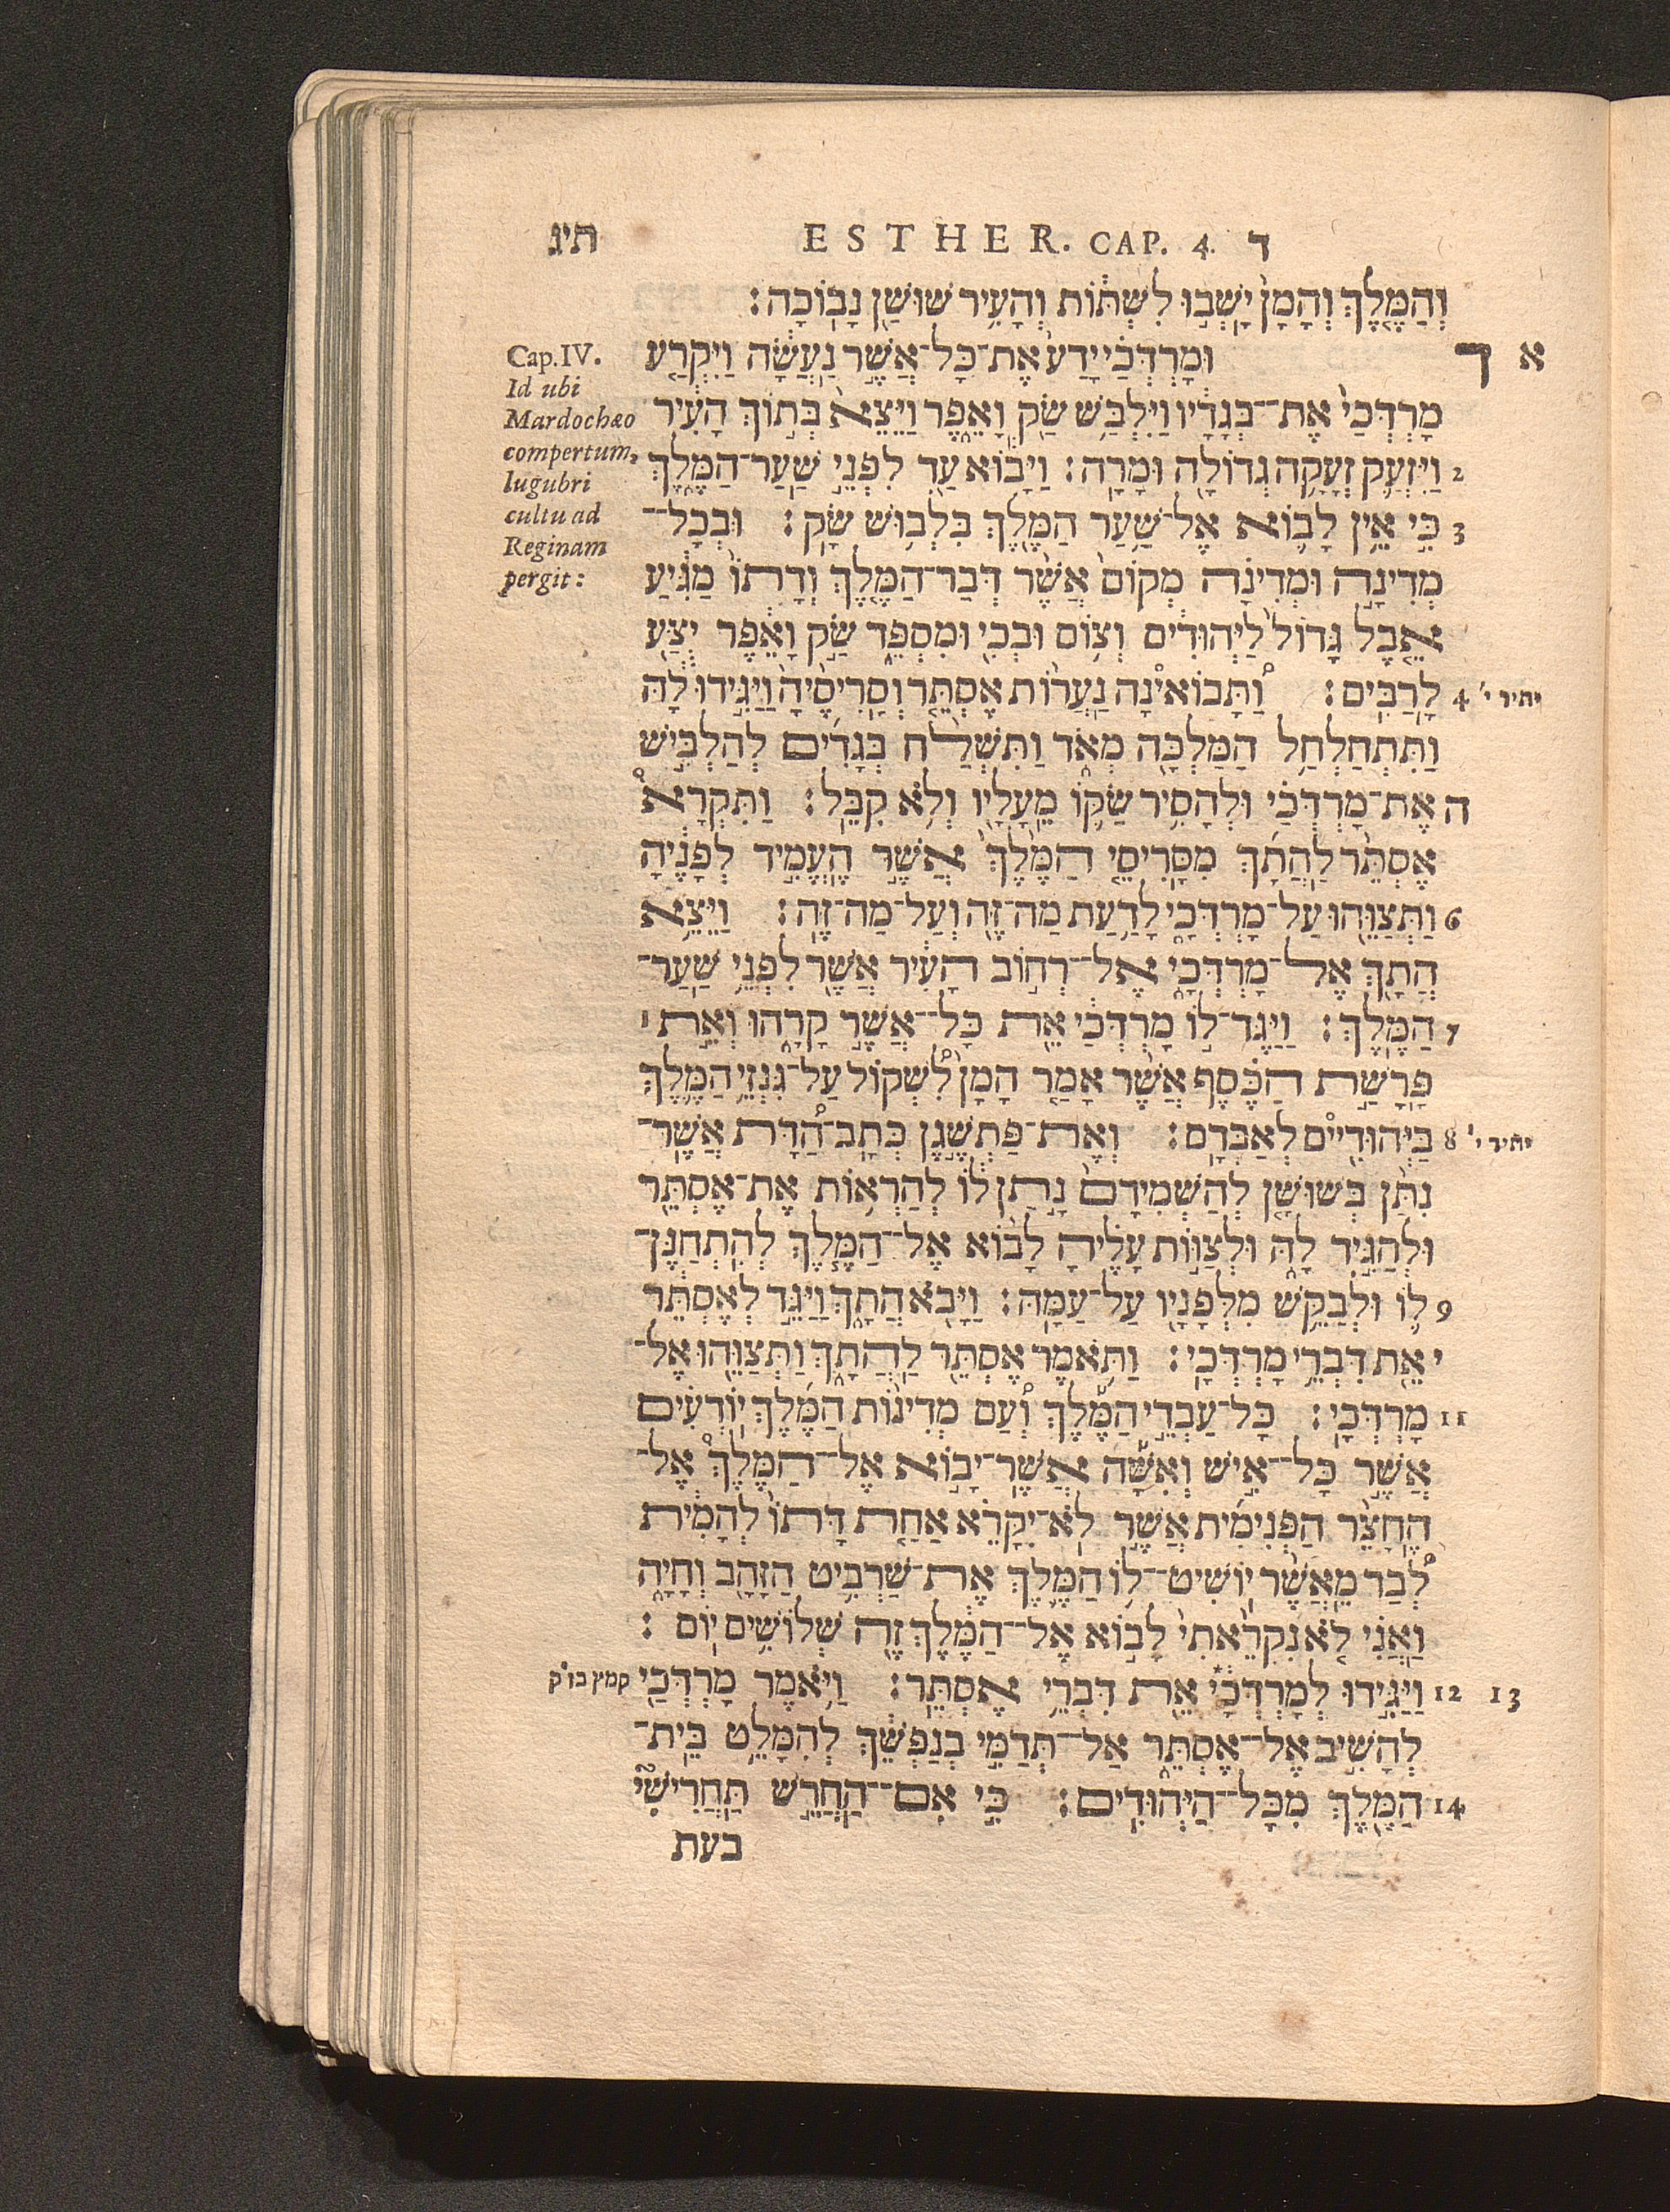 תיג ESTHER. CAP. 4. ד
וְהַמֶּ֤לֶךְ וְהָמָן֙ יָשְׁב֣וּ לִשְׁתּ֔וֹת וְהָעִ֥יר שׁוּשָׁ֖ן נָבֽוֹכָה׃
א ד וּמָרְדֳּכַ֗י יָדַע֙ אֶת־כָּל־אֲשֶׁ֣ר נַעֲשָׂ֔ה וַיִּקְרַ֤ע
מָרְדְּכַי֙ אֶת־בְּגָדָ֔יו וַיִּלְבַּ֥שׁ שַׂ֖ק וָאֵ֑פֶר וַיֵּצֵא֙ בְּת֣וֹךְ הָעִ֔יר
2 וַיִּזְעַ֛ק זְעָקָ֥ה גְדוֹלָ֖ה וּמָרָֽה׃ וַיָּב֕וֹא עַ֖ד לִפְנֵ֣י שַֽׁעַר־הַמֶּ֑לֶךְ
3 כִּ֣י אֵ֥ין לָב֛וֹא אֶל־שַׁ֥עַר הַמֶּ֖לֶךְ בִּלְב֥וּשׁ שָֽׂק׃ וּבְכָל־
מְדִינָ֣ה וּמְדִינָ֗ה מְקוֹם֙ אֲשֶׁ֨ר דְּבַר־הַמֶּ֤לֶךְ וְדָתוֹ֙ מַגִּ֔יעַ
אֵ֤בֶל גָּדוֹל֙ לַיְּהוּדִ֔ים וְצ֥וֹם וּבְכִ֖י וּמִסְפֵּ֑ד שַׂ֣ק וָאֵ֔פֶר יֻצַּ֖ע
4 לָֽרַבִּֽים׃ וַ֠תָּבוֹאינָה נַעֲר֨וֹת אֶסְתֵּ֤ר וְסָרִיסֶ֙יהָ֙ וַיַּגִּ֣ידוּ לָ֔הּ
יתיר י׳
וַתִּתְחַלְחַ֥ל הַמַּלְכָּ֖ה מְאֹ֑ד וַתִּשְׁלַ֨ח בְּגָדִ֜ים לְהַלְבִּ֣ישׁ
ה אֶֽת־מָרְדְּכַ֗י וּלְהָסִ֥יר שַׂקּ֛וֹ מֵעָלָ֖יו וְלֹ֥א קִבֵּֽל׃ וַתִּקְרָא֩
אֶסְתֵּ֨ר לַהֲתָ֜ךְ מִסָּרִיסֵ֤י הַמֶּ֙לֶךְ֙ אֲשֶׁ֣ר הֶעֱמִ֣יד לְפָנֶ֔יהָ
6 וַתְּצַוֵּ֖הוּ עַֽל־מָרְדְּכָ֑י לָדַ֥עַת מַה־זֶּ֖ה וְעַל־מַה־זֶּֽה׃ וַיֵּצֵ֥א
הֲתָ֖ךְ אֶֽל־מָרְדְּכָ֑י אֶל־רְח֣וֹב הָעִ֔יר אֲשֶׁ֖ר לִפְנֵ֥י שַֽׁעַר־
7 הַמֶּֽלֶךְ׃ וַיַּגֶּד־ל֣וֹ מָרְדְּכַ֔י אֵ֖ת כָּל־אֲשֶׁ֣ר קָרָ֑הוּ וְאֵ֣ת ׀
פָּרָשַׁ֣ת הַכֶּ֗סֶף אֲשֶׁ֨ר אָמַ֤ר הָמָן֙ לִ֠שְׁקוֹל עַל־גִּנְזֵ֥י הַמֶּ֛לֶךְ
8 בַּיְּהוּדִ֖יים לְאַבְּדָֽם׃ וְאֶת־פַּתְשֶׁ֣גֶן כְּתָֽב־הַ֠דָּת אֲשֶׁר־
יתיר י׳
נִתַּ֨ן בְּשׁוּשָׁ֤ן לְהַשְׁמִידָם֙ נָ֣תַן ל֔וֹ לְהַרְא֥וֹת אֶת־אֶסְתֵּ֖ר
וּלְהַגִּ֣יד לָ֑הּ וּלְצַוּ֣וֹת עָלֶ֗יהָ לָב֨וֹא אֶל־הַמֶּ֧לֶךְ לְהִֽתְחַנֶּן־
9 ל֛וֹ וּלְבַקֵּ֥שׁ מִלְּפָנָ֖יו עַל־עַמָּֽהּ׃ וַיָּב֖וֹא הֲתָ֑ךְ וַיַּגֵּ֣ד לְאֶסְתֵּ֔ר
י אֵ֖ת דִּבְרֵ֥י מָרְדְּכָֽי׃ וַתֹּ֥אמֶר אֶסְתֵּ֖ר לַהֲתָ֑ךְ וַתְּצַוֵּ֖הוּ אֶֽל־
11 מָרְדְּכָֽי׃ כָּל־עַבְדֵ֣י הַמֶּ֡לֶךְ וְעַם מְדִינ֨וֹת הַמֶּ֜לֶךְ יֽוֹדְעִ֗ים
אֲשֶׁ֣ר כָּל־אִ֣ישׁ וְאִשָּׁ֡ה אֲשֶׁ֣ר־יָבֽוֹא אֶל־הַמֶּלֶךְ֩ אֶל־
הֶחָצֵ֨ר הַפְּנִימִ֜ית אֲשֶׁ֣ר לֹֽא־יִקָּרֵ֗א אַחַ֤ת דָּתוֹ֙ לְהָמִ֔ית
לְ֠בַד מֵאֲשֶׁ֨ר יֽוֹשִׁיט־ל֥וֹ הַמֶּ֛לֶךְ אֶת־שַׁרְבִ֥יט הַזָּהָ֖ב וְחָיָ֑ה
וַאֲנִ֗י לֹ֤א נִקְרֵ֙אתִי֙ לָב֣וֹא אֶל־הַמֶּ֔לֶךְ זֶ֖ה שְׁלוֹשִׁ֥ים יֽוֹם׃
12 13 וַיַּגִּ֣ידוּ לְמָרְדְּכָ֔י אֵ֖ת דִּבְרֵ֥י אֶסְתֵּֽר׃ וַיֹּ֥אמֶר מָרְדְּכַ֖י
קמץ בז״ק
לְהָשִׁ֣יב אֶל־אֶסְתֵּ֑ר אַל־תְּדַמִּ֣י בְנַפְשֵׁ֔ךְ לְהִמָּלֵ֥ט בֵּית־
14 הַמֶּ֖לֶךְ מִכָּל־הַיְּהוּדִֽים׃ כִּ֣י אִם־הַחֲרֵ֣שׁ תַּחֲרִישִׁי֮
בעת
Cap.IV.
Id ubi
Mardochæo
compertum,
lugubri
cultu ad
Reginam
pergit: